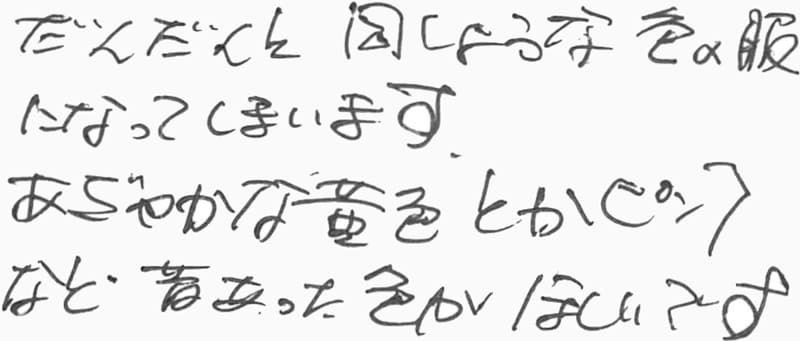 だんだんと同じような色の服
になってしまいます.
あざやかな黄色とかピンク
など昔あった色がほしいです